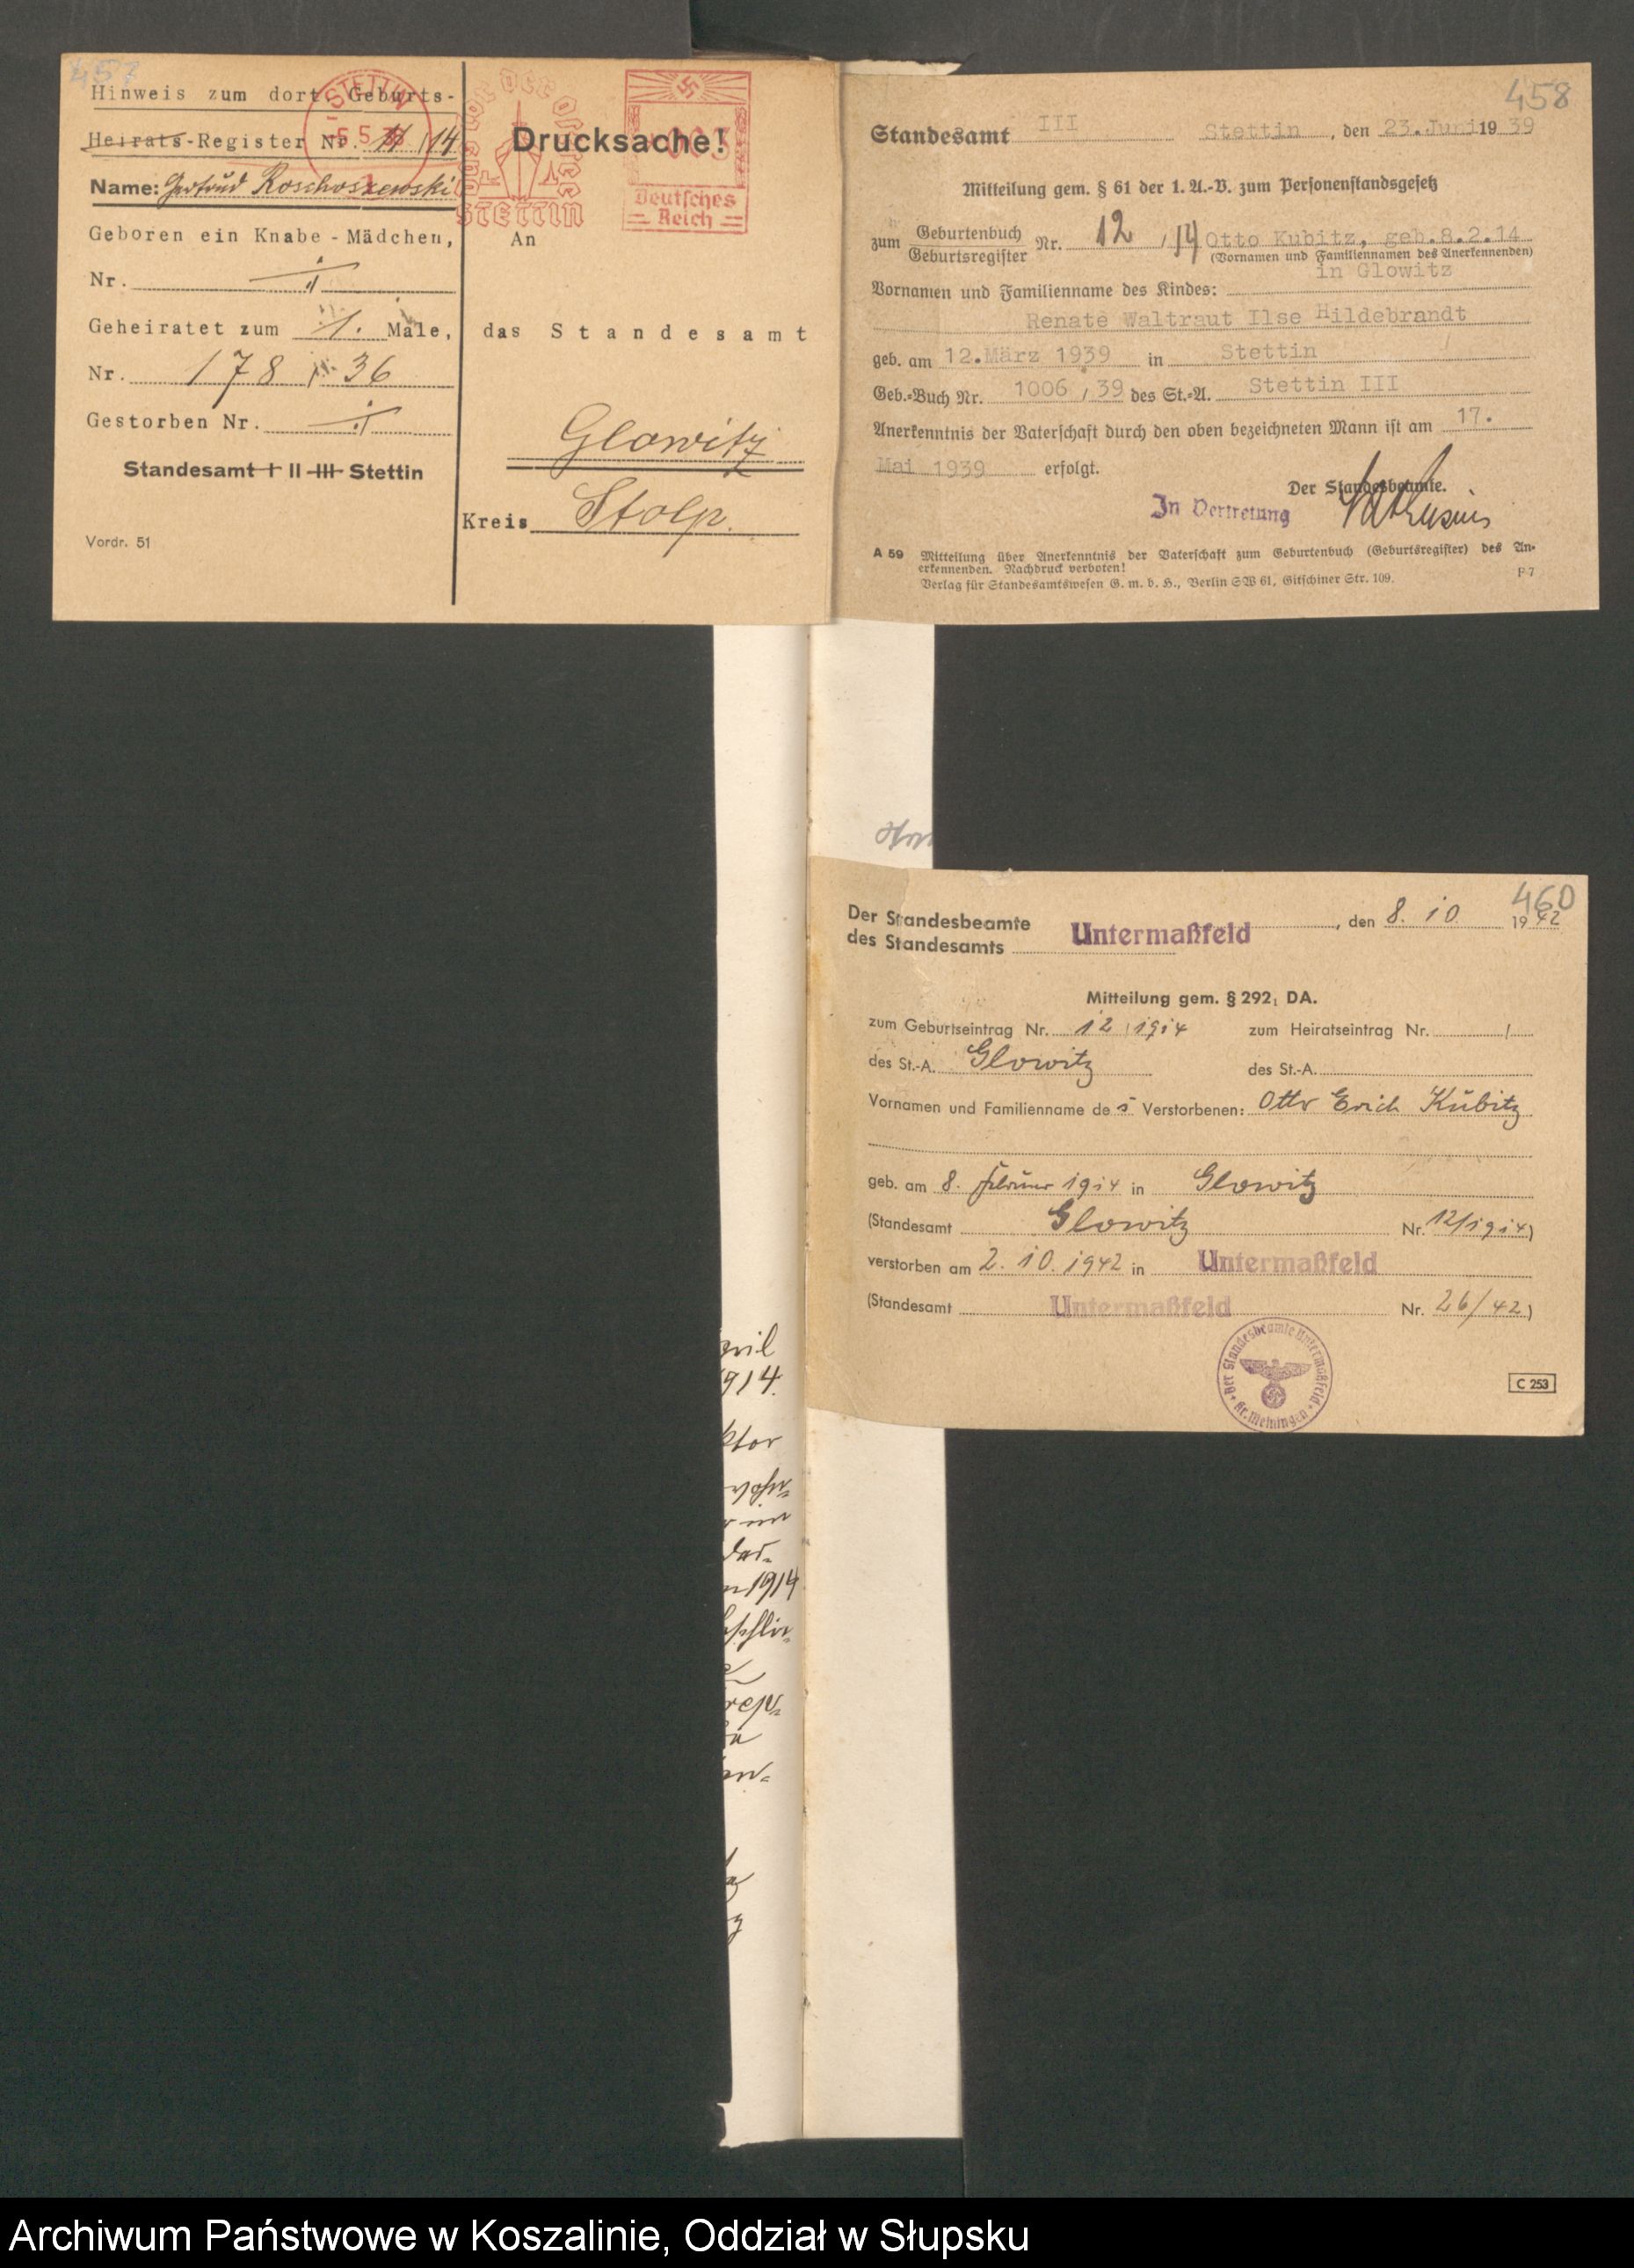 457
Hinweis zum dort. Geburts-
Heirats-Register Nr. 11 / 14
Name: Gertrud Roschoszewski
Geboren ein Knabe - Mädchen,
Nr.
Geheiratet zum 1. Male,
Nr. 178 / 36
Gestorben Nr.
Standesamt I II III Stettin
Vordr. 51
STETTIN
-5.5.
STETTIN
Deutsches
Reich
Drucksache!
An
das Standesamt
Glowitz
Kreis Stolp.
458
Standesamt III Stettin, den 23. Juni 1939
Mitteilung gem. § 61 der 1. A.-V. zum Personenstandsgesetz
zum Geburtenbuch
Geburtsregister Nr. 12 / 14 Otto Kubitz, geb. 8.2.14
(Vornamen und Familiennamen des Anerkennenden)
in Glowitz
Vornamen und Familienname des Kindes:
Renate Waltraut Ilse Hildebrandt
geb. am 12. März 1939 in Stettin
Geb.-Buch Nr. 1006 / 39 des St.-A. Stettin III
Anerkenntnis der Vaterschaft durch den oben bezeichneten Mann ist am 17.
Mai 1939 erfolgt.
Der Standesbeamte.
In Vertretung
A 59 Mitteilung über Anerkenntnis der Vaterschaft zum Geburtenbuch (Geburtsregister) des An-
erkennenden. Nachdruck verboten!
Verlag für Standesamtswesen G. m. b. H., Berlin SW 61, Gitschiner Str. 109.
F 7
460
Der Standesbeamte
des Standesamts Untermaßfeld, den 8. 10. 1942
Mitteilung gem. § 292, DA.
zum Geburtseintrag Nr. 12 / 1914 zum Heiratseintrag Nr. /
des St.-A. Glowitz des St.-A.
Vornamen und Familienname des Verstorbenen: Otto Erich Kubitz
geb. am 8. Februar 1914 in Glowitz
(Standesamt Glowitz Nr. 12/1914)
verstorben am 2. 10. 1942 in Untermaßfeld
(Standesamt Untermaßfeld Nr. 26/42)
Der Standesbeamte Untermaßfeld
Kr. Meiningen
C 253
1914.
1914
Archiwum Państwowe w Koszalinie, Oddział w Słupsku